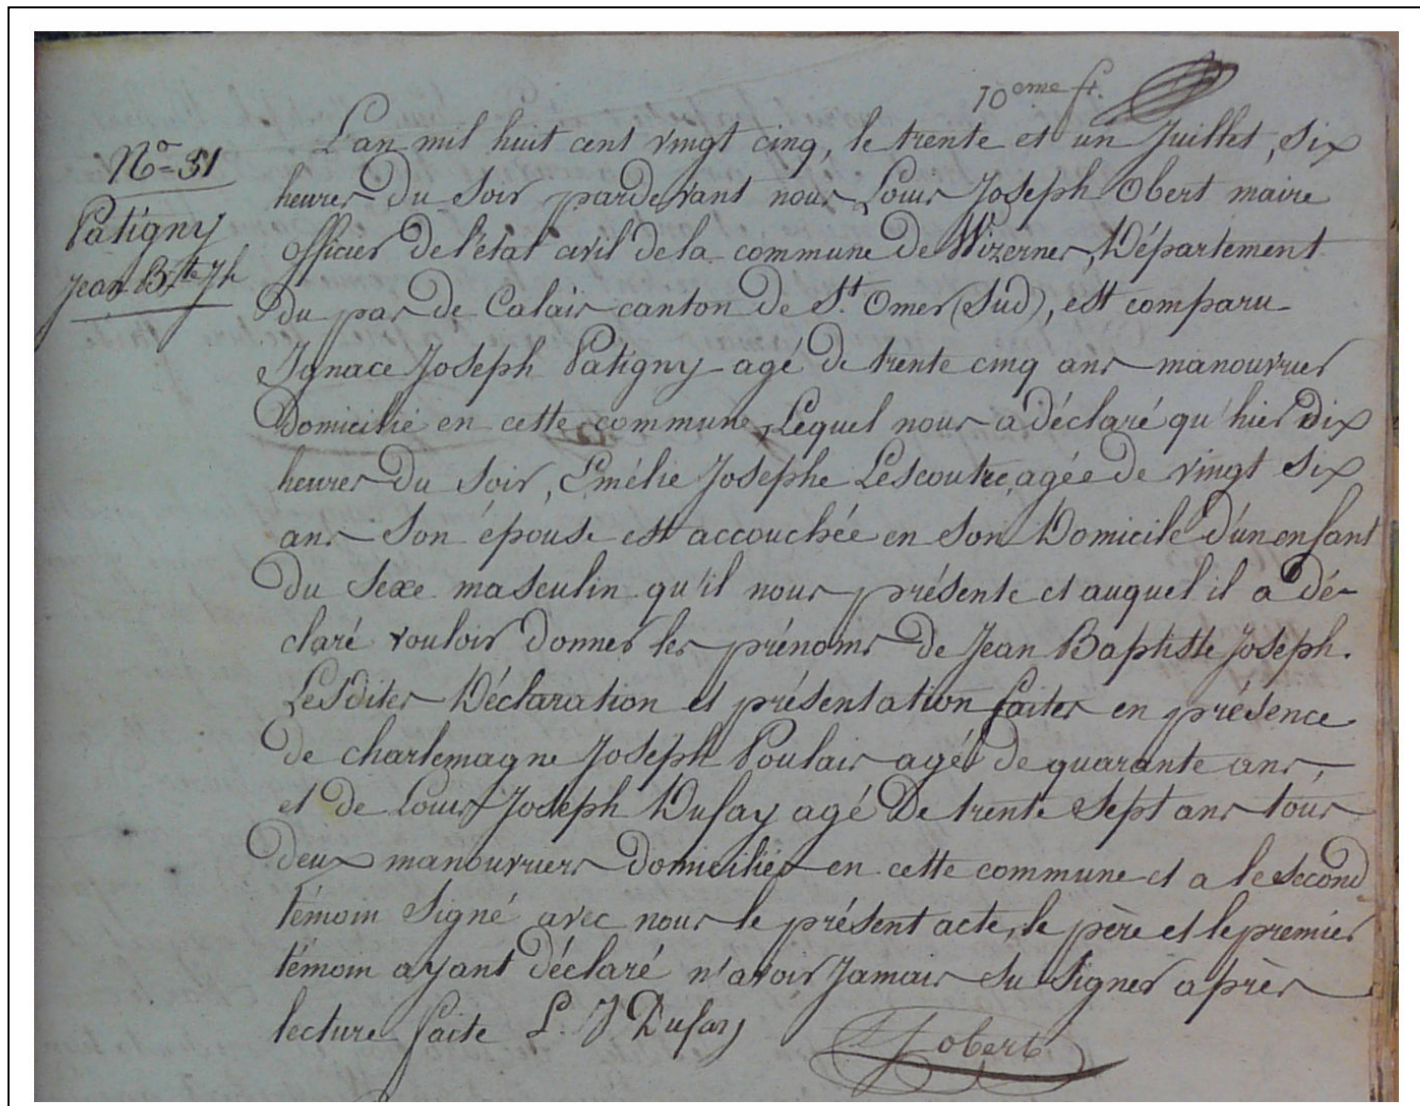 10eme ft.
N° 31
Patigny
Jean Bte Jh
L'an mil huit cent vingt cinq, le trente et un Juillet, Six
heures du Soir pardevant nous Louis Joseph Obert maire
officier de l'état civil de la commune de Wizernes, Département
du pas de Calais canton de St. Omer (Sud), est comparu
Ignace Joseph Patigny agé de trente cinq ans manouvrier
Domicilié en cette commune, Lequel nous a déclaré qu'hier dix
heures du Soir, Emélie Josephe Lescoutre, agée de vingt Six
ans Son épouse est accouchée en Son Domicile d'un enfant
du Sexe masculin qu'il nous présente et auquel il a dé-
claré vouloir donner les prénoms de Jean Baptiste Joseph.
Lesdites Déclaration et présentation faites en présence
de charlemagne Joseph Poulais agé de quarante ans,
et de Louis Joseph Dufay agé De trente Sept ans tous
deux manouvriers Domiciliés en cette commune et a le Second
témoin Signé avec nous le présent acte, le père et le premier
témoin ayant déclaré n'avoir Jamais Su Signer après
lecture faite L. J Dufay
Jobert